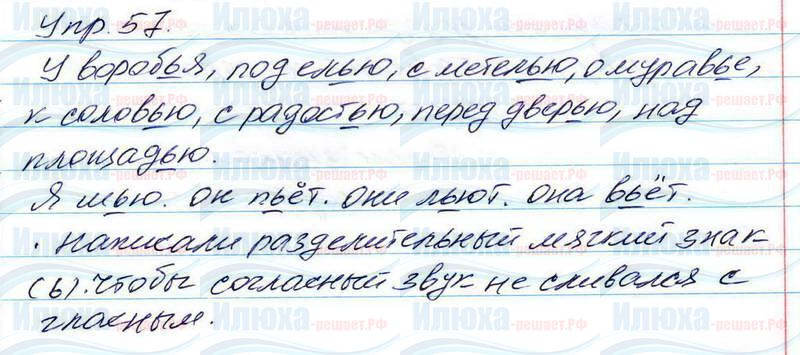 Упр. 57.
У воробья, под елью, с метелью, о муравье,
к соловью, с радостью, перед дверью, над
площадью.
Я шью. он пьёт. они льют. она вьёт.
. написали разделительный мягкий знак
(ь). чтобы согласный звук не сливался с
гласным.